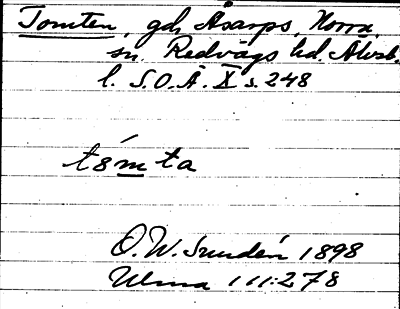 Tomten, gd, Åsarps, Norra,
sn. Redvägs hd. Älvsb.
l. S.O.Ä. X s. 248
tómta
O.W. Sundén 1898
Ulma 111:278